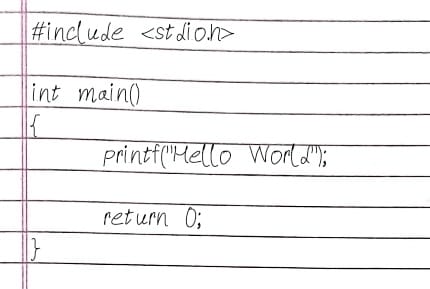 #include <stdio.h>
int main()
{
printf("Hello World");
return 0;
}